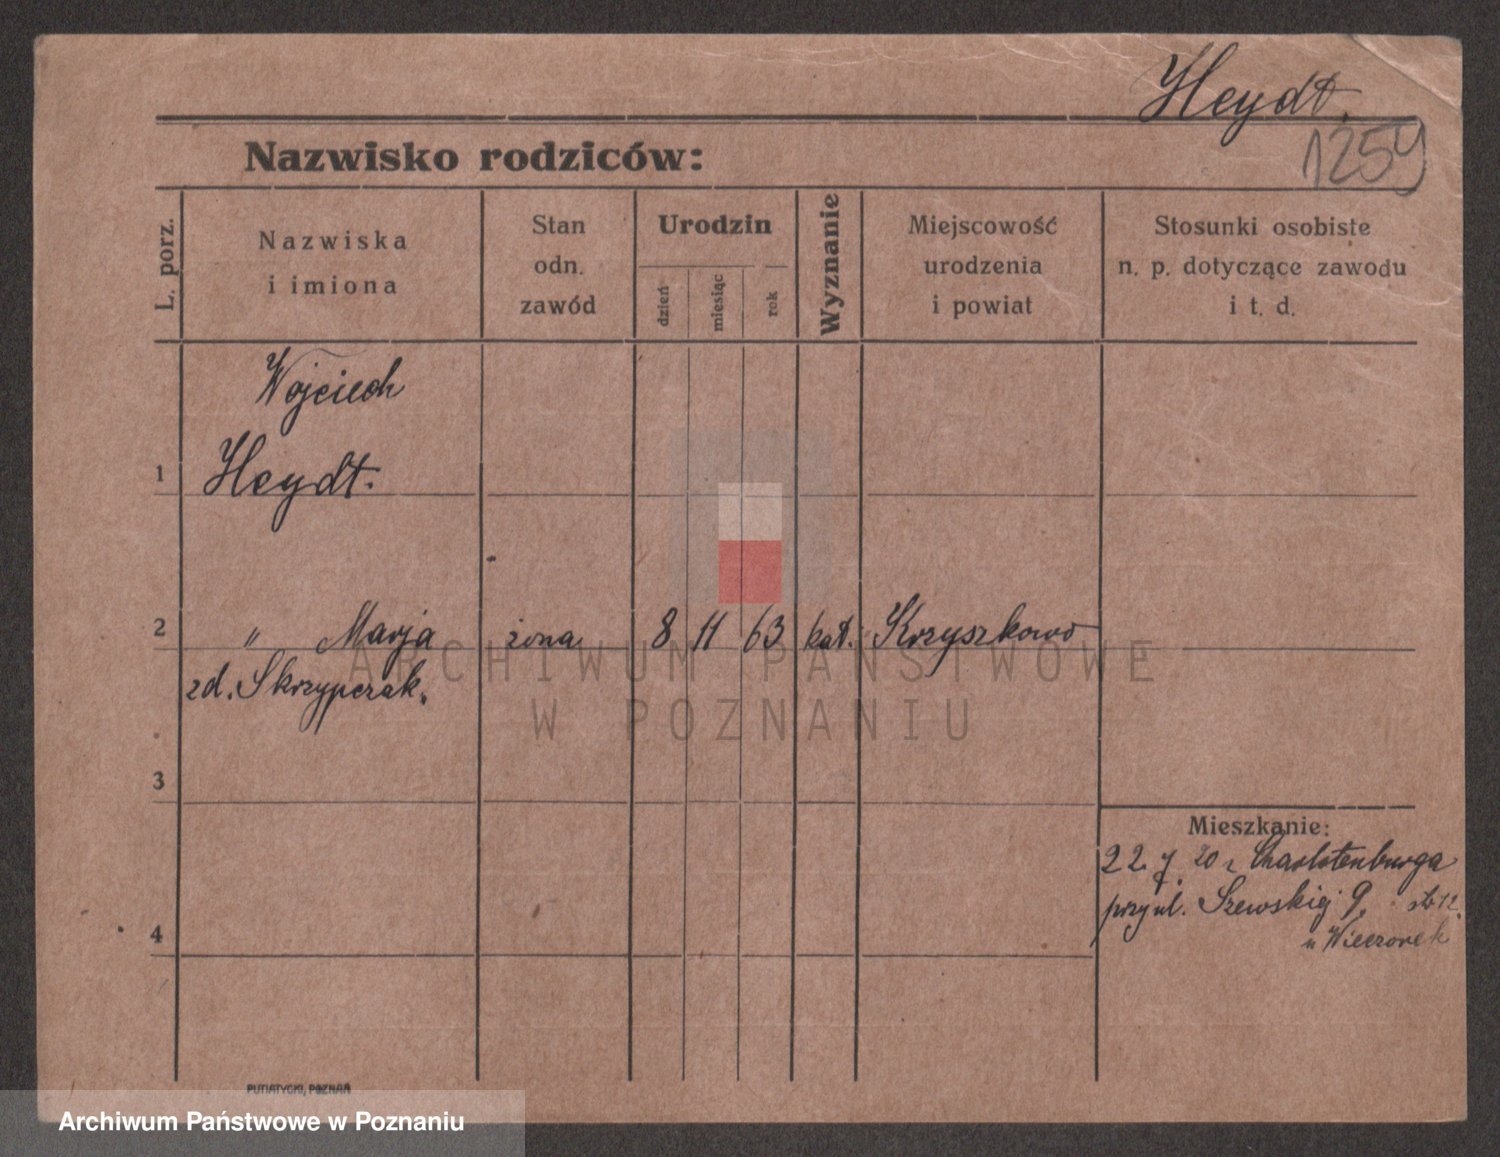 Heydt.
1259
Nazwisko rodziców:
L. porz.
Nazwiska
i imiona
Stan
odn.
zawód
Urodzin
dzień
miesiąc
rok
Wyznanie
Miejscowość
urodzenia
i powiat
Stosunki osobiste
n. p. dotyczące zawodu
i t. d.
Wojciech
1 Heydt.
2 " Marja żona 8 11 63 kat. Krzyszkowo
zd. Skrzypczak.
ARCHIWUM PAŃSTWOWE
W POZNANIU
3
Mieszkanie:
22. 7. 20 z Charlotenburga
przy ul. Szewskiej 9,
u Wieczorek
4
PUTIATYCKI, POZNAŃ
Archiwum Państwowe w Poznaniu